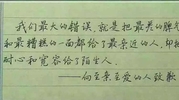 我们最大的错误，就是把最差的脾气
和最糟糕的一面都给了最亲近的人，却把
耐心和宽容给了陌生人。
——向至亲至爱的人致歉